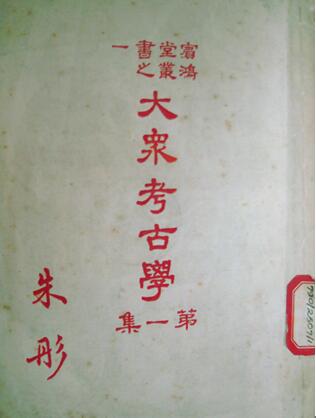 賓鴻堂叢書之一
大眾考古學
第一集
朱彤